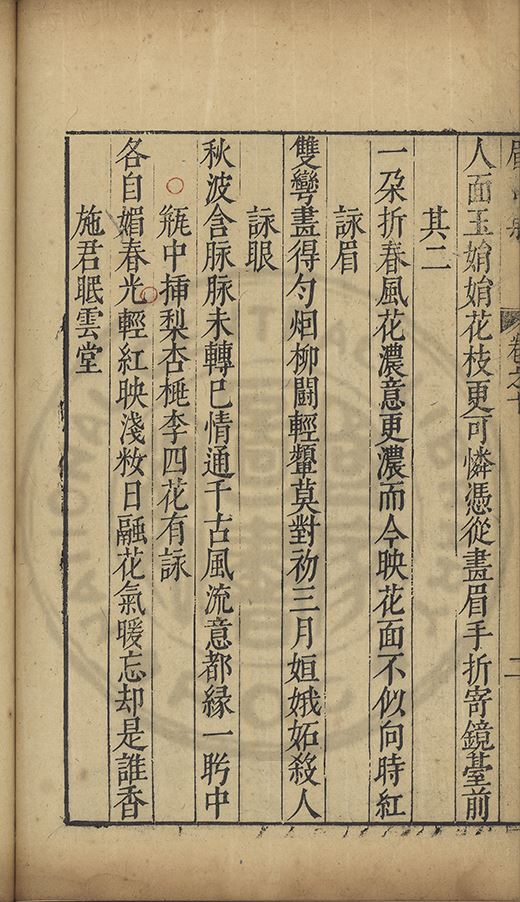 卷之十
二
人面玉娟娟花枝更可憐憑從畫眉手折寄鏡臺前
其二
一朶折春風花濃意更濃而今映花面不似向時紅
詠眉
雙彎畫得勻烟柳鬪輕顰莫對初三月姮娥妬殺人
詠眼
秋波含脉脉未轉已情通千古風流意都緣一眄中
瓶中揷梨杏桃李四花有詠
各自媚春光輕紅映淺粧日融花氣暖忘却是誰香
施君眠雲堂